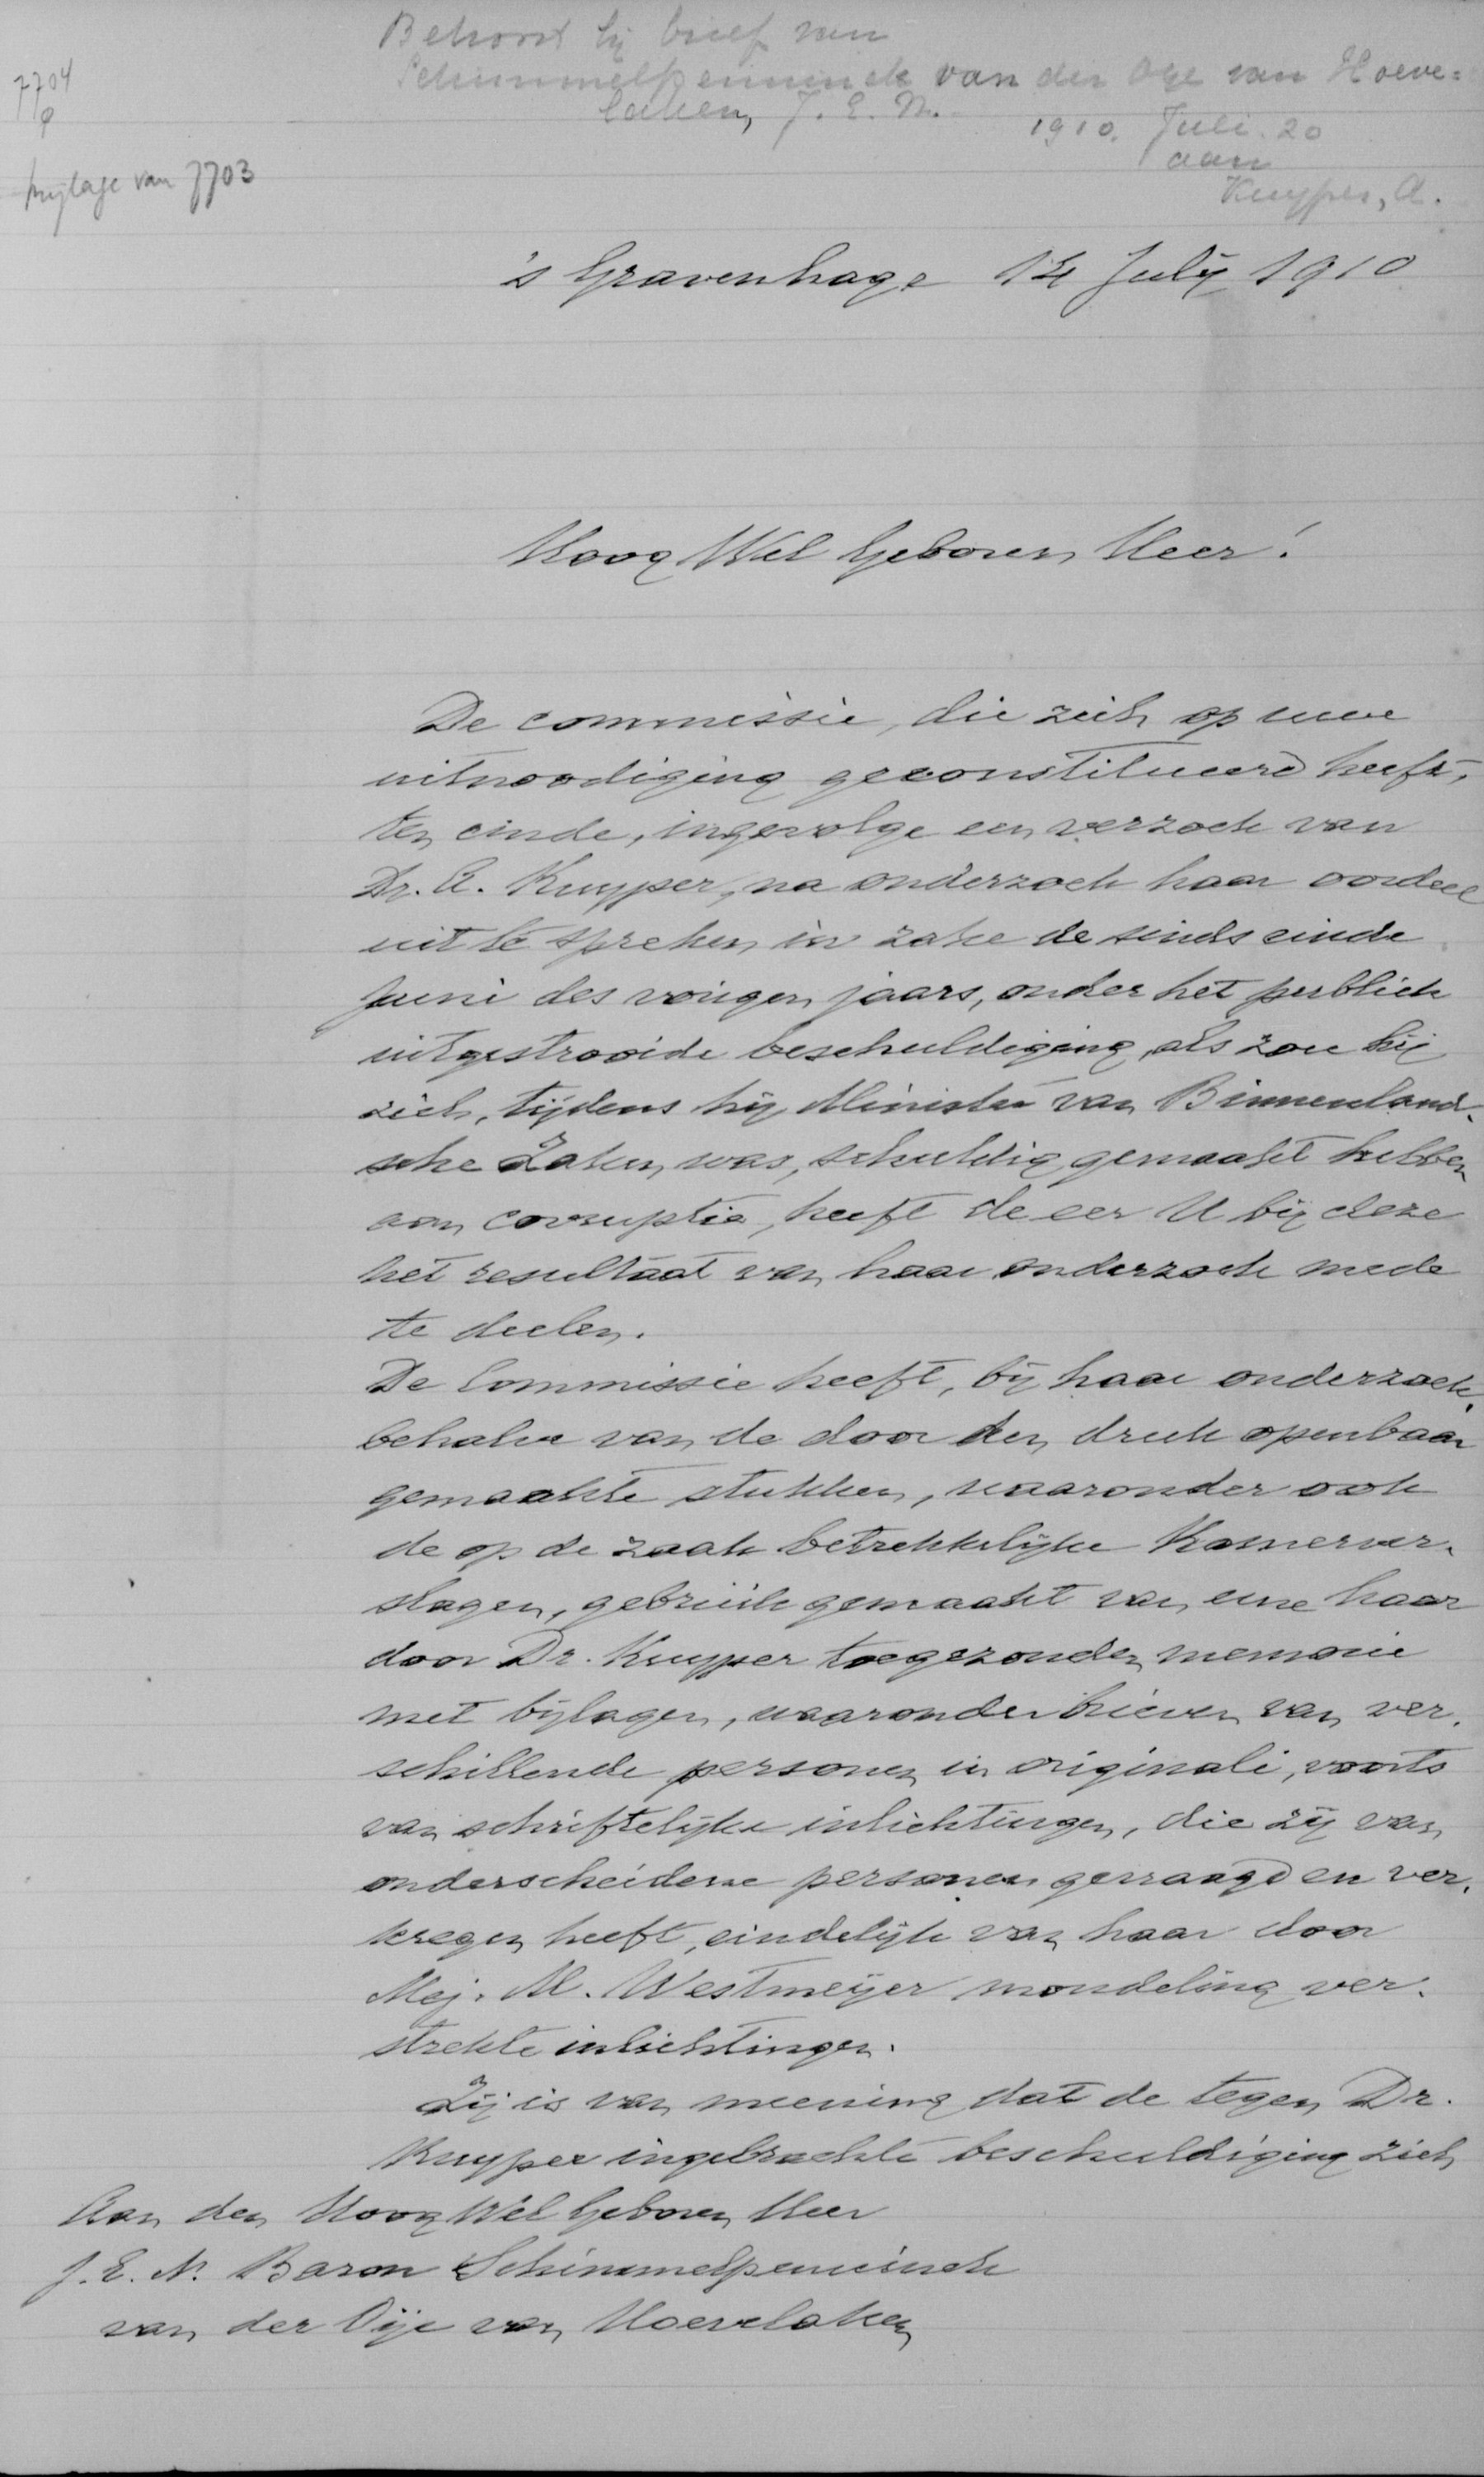 Behoort bij brief van
Schimmelpenninck van der Oye van Hoeve=
laken, J. E. N.
1910. Juli. 20
aan
Kuyper, A.
7704
φ
bijlage van 7703
's Gravenhage 14 July 1910
Hoog Wel Geboren Heer!
De commissie, die zich op uwe
uitnoodiging geconstitueerd heeft,
ten einde, ingevolge een verzoek van
Dr. A. Kuyper, na onderzoek haar oordeel
uit te spreken in zake de sinds einde
Juni des vorigen jaars, onder het publiek
uitgestrooide beschuldiging, als zou hij
zich, tijdens hij Minister van Binnenland-
sche Zaken was, schuldig gemaakt hebben
aan corruptie, heeft de eer U bij deze
het resultaat van haar onderzoek mede
te deelen.
De Commissie heeft, bij haar onderzoek,
behalve van de door den druk openbaar
gemaakte stukken, waaronder ook
de op de zaak betrekkelijke Kamerver-
slagen, gebruik gemaakt van eene haar
door Dr. Kuyper toegezonden memorie
met bijlagen, waaronder brieven van ver-
schillende personen in originali, voorts
van schriftelijke inlichtingen, die zij van
onderscheidene personen gevraagd en ver-
kregen heeft, eindelijk van haar door
Mej. M. Westmeijer mondeling ver-
strekte inlichtingen.
Zij is van meening dat de tegen Dr.
Kuyper ingebrachte beschuldiging zich
Aan den Hoog Wel Geboren Heer
J. E. N. Baron Schimmelpenninck
van der Oije van Hoevelaken